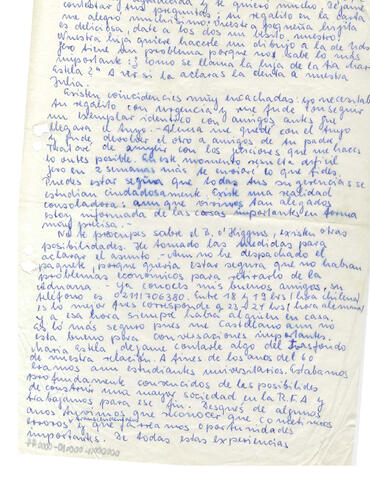 contestar y tus preguntas
te quiero mucho, déjame
me alegró muchísimo. Vuestra pequeña hijita
es deliciosa, dale a los dos un beso. Nuestra
Nuestra hija quiere hacerle un dibujo a la de Uds
pero tiene un problema porque no sabe lo más
importante: ¿como se llama la hija de la tía María
Estela? A ver si la aclaras la duda a nuestra
Julia.
Existen coincidencias muy
yo necesitaba
tu regalito con urgencia y me pude conseguir
un ejemplar idéntico con amigos antes que
llegara el tuyo. - Ahora me quedé con el tuyo
y pude devolver el otro a amigos de su padre
Trataré de
con las peticiones que me haces
lo antes posible. En este momento resulta difícil
pero en 2 semanas más te enviaré lo que pides.
Puedes estar segura que todas tus sugerencias se
estudian cuidadosamente. Existe una realidad
consoladora: aun que vivimos tan alejados
estoy informada de las cosas importantes en forma
muy precisa. -
No te preocupes sobre el B. O'Higgins, existen otras
posibilidades. He tomado las medidas para
aclarar el asunto. - Aun no he despachado el
paquete, porque quería estar segura que no habían
problemas económicos para retirarlo de la
aduana. - Ya conocés mis buenos amigos, su
teléfono es 02111706380. Entre 18 y 19 hrs (hora chilena)
es lo mejor pues corresponde a 23 a 24 hrs (hora alemana)
y a esa hora siempre habrá alguien en casa.
Es lo más seguro pues mi Castellano aun no
está bueno para conversaciones importantes.
María Estela dejame contarte algo del Trasfondo
de nuestra relación. A fines de los años del 60
eramos aun estudiantes universitarios. Estábamos
profundamente convencidos de las posibilidades
de construir una mayor sociedad en la R.F.A y
trabajamos para ese fin. Después de algunos
años tuvimos que reconocer que cometimos
errores y que
oportunidades
importantes. De todas estas experiencias